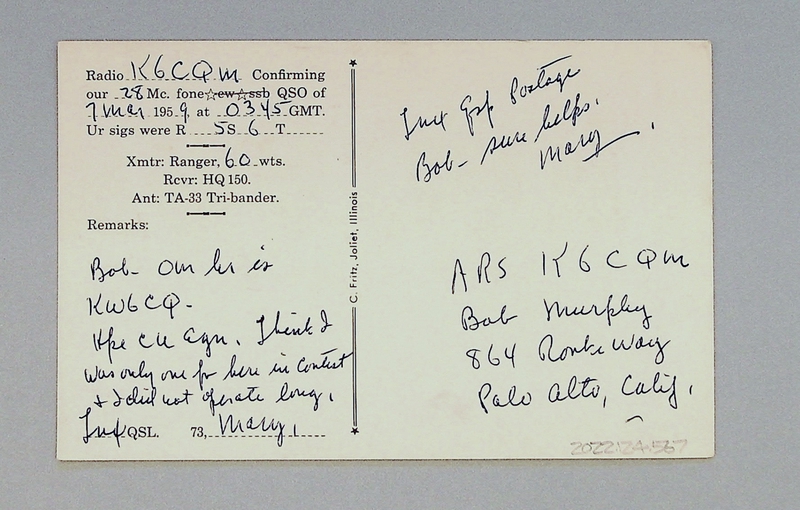 Radio K6CQM Confirming
our 28 Mc. fone☆cw☆ssb QSO of
7 Mar 1959, at 0345 GMT.
Ur sigs were R 5 S 6 T
Xmtr: Ranger, 60 wts.
Rcvr: HQ 150.
Ant: TA-33 Tri-bander.
Remarks:
Bob - Om hr is
KW6CQ-
Hpe cu agn. Think I
was only one for here in contest
& I did not operate long.
Tnx QSL. 73, Mary,
C. Fritz, Joliet, Illinois
Tnx Postage
Bob - sure helps.
Mary
ARS K6CQM
Bob Murphy
864 Way
Palo Alto, Calif.
2022.24.567